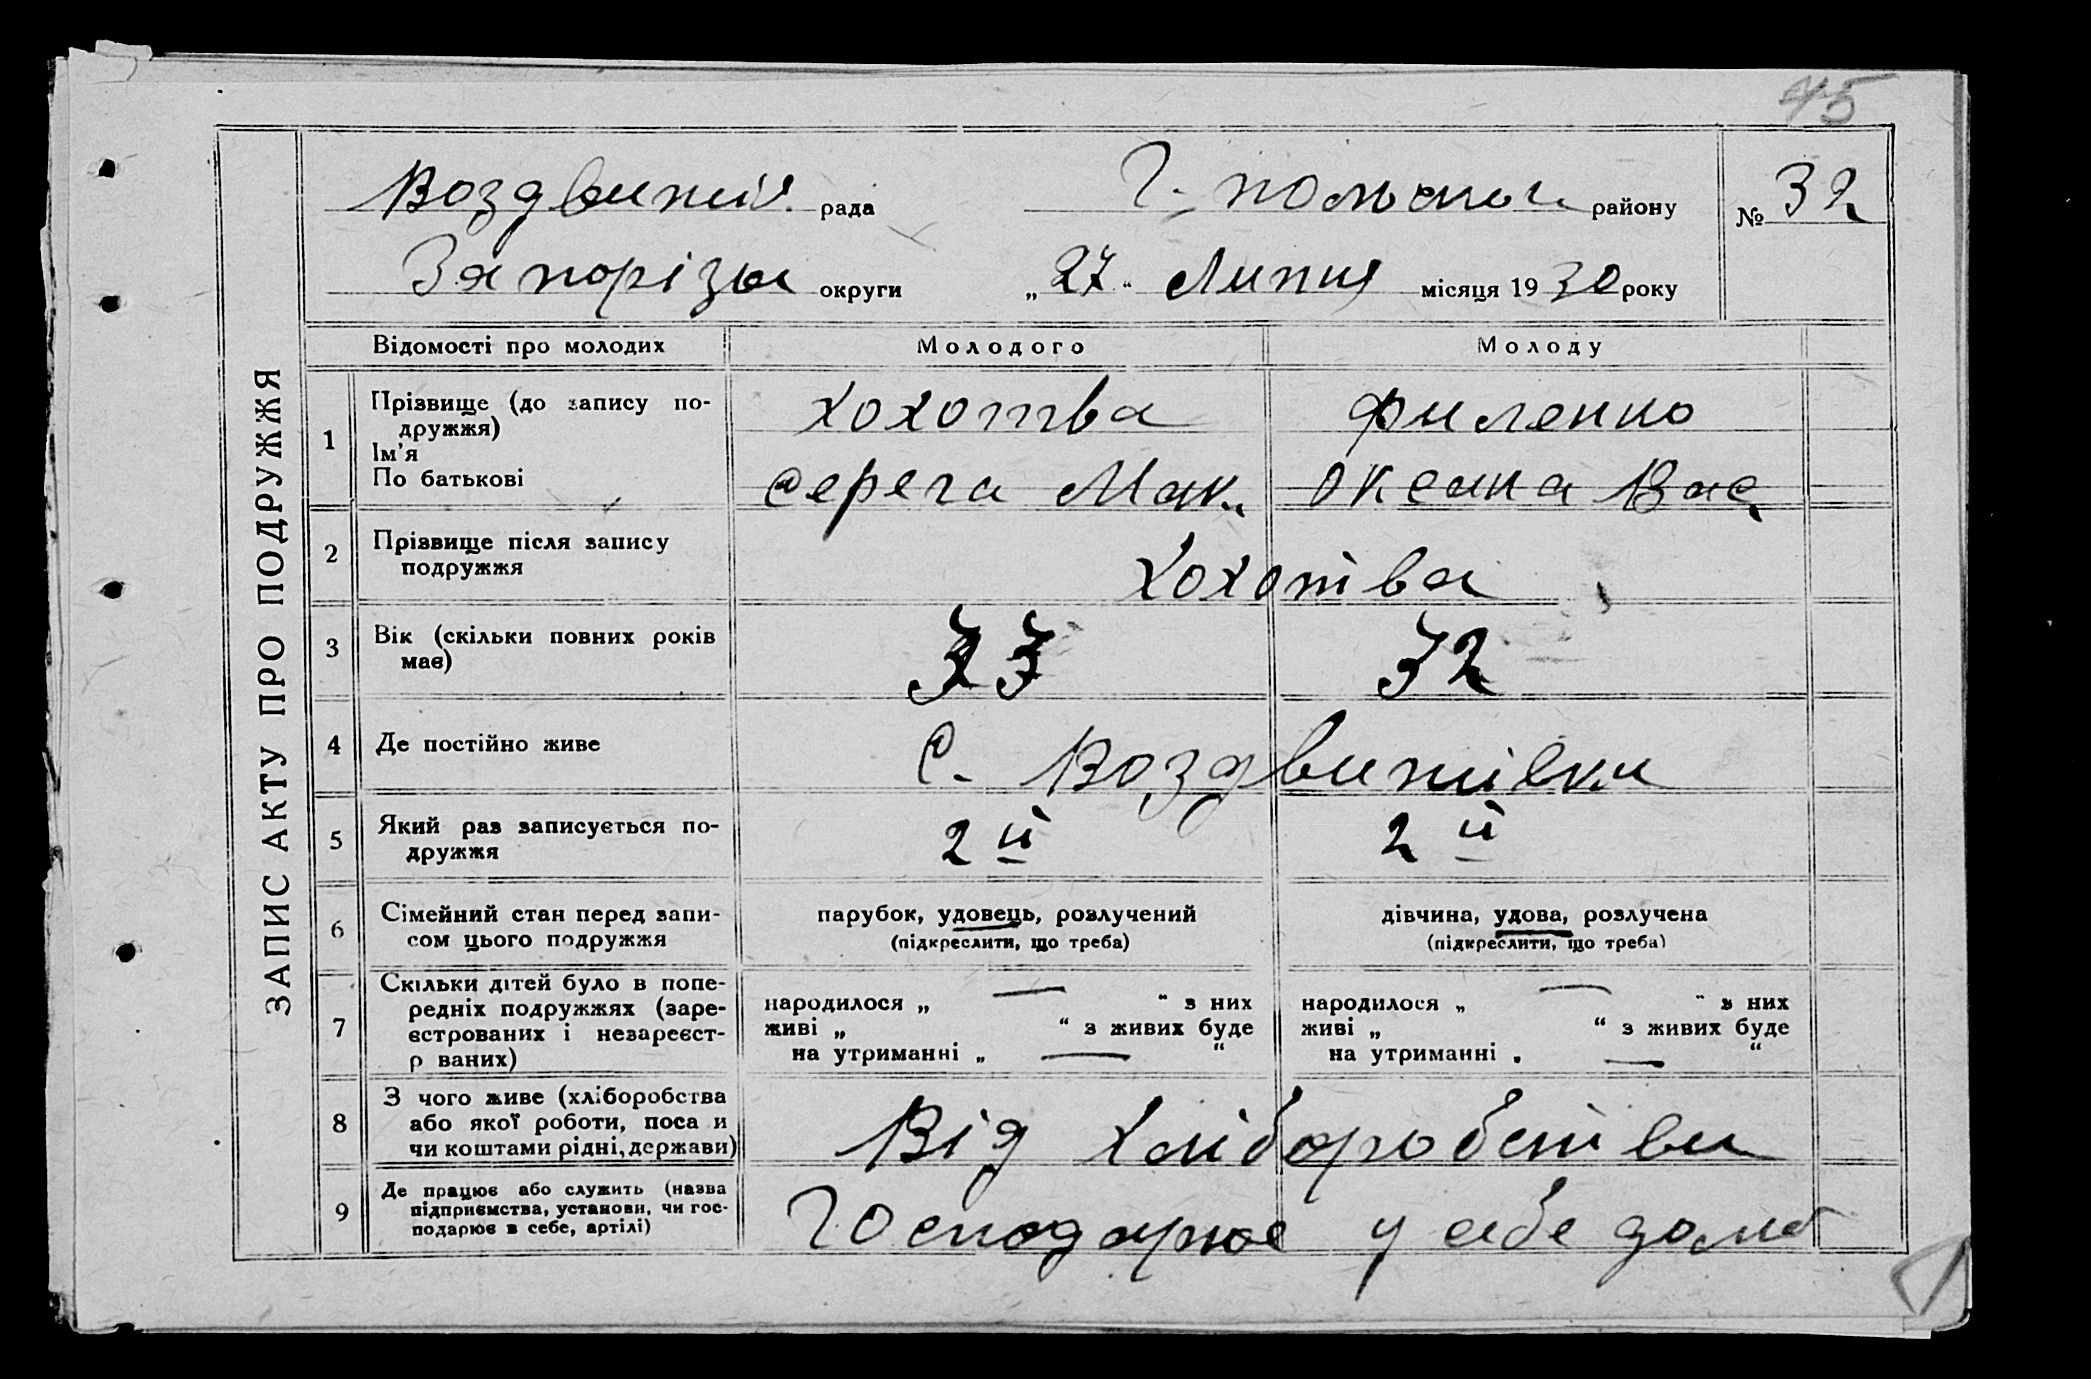 45
Воздвижів. рада Г. польськ. району № 32
Запорізьк округи „27“ Липня місяця 1930 року
ЗАПИС АКТУ ПРО ПОДРУЖЖЯ
Відомості про молодих Молодого Молоду
1 Прізвище (до запису по-
дружжя)
Ім'я
По батькові
Хохотва Филенко
Серега Мак. Оксана Вас.
2 Прізвище після запису
подружжя
Хохотва
3 Вік (скільки повних років
має)
33 32
4 Де постійно живе
С. Воздвижівки
5 Який раз записується по-
дружжя
2й 2й
6 Сімейний стан перед запи-
сом цього подружжя
парубок, удовець, розлучений дівчина, удова, розлучена
(підкреслити, що треба) (підкреслити, що треба)
7 Скільки дітей було в попе-
редніх подружжях (заре-
єстрованих і незареєст-
р ваних)
народилося „ — “ з них народилося „ — “ з них
живі „ “ з живих буде живі „ “ з живих буде
на утриманні „ — “ на утриманні „ — “
8 З чого живе (хліборобства
або якої роботи, поса и
чи коштами рідні, держави)
Від хліборобства
9 Де працює або служить (назва
підприємства, установи, чи гос-
подарює в себе, артілі)
Господарює у себе дома